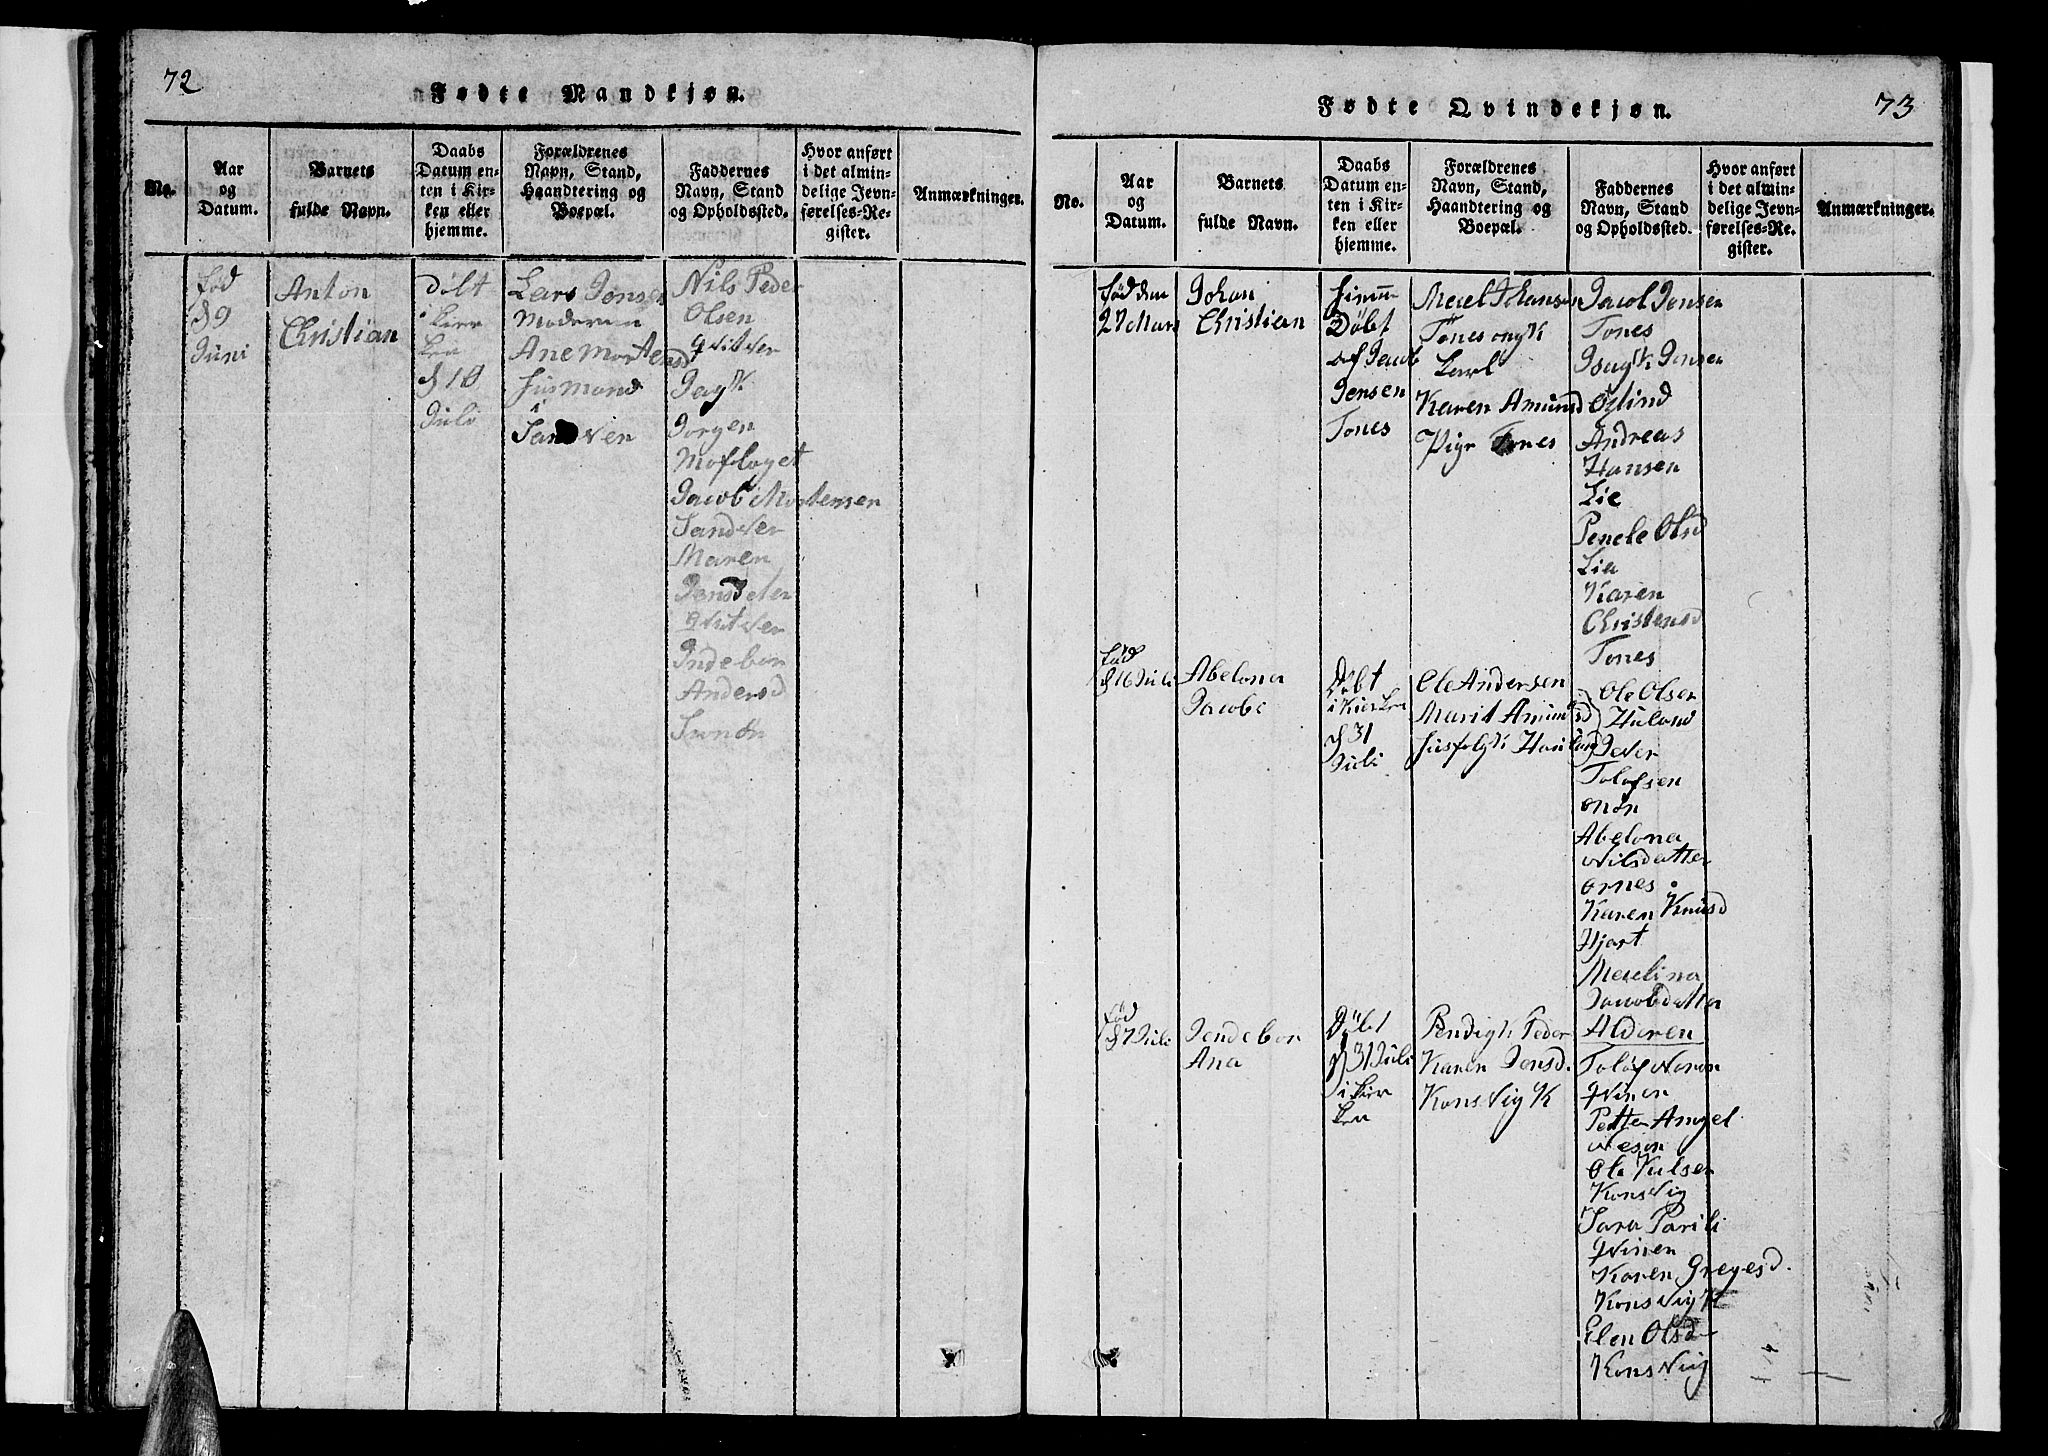 72
Fødte Mandkjøn.
No.
Aar
og
Datum.
Barnets
fulde Navn.
Daabs
Datum en-
ten i Kir-
ken eller
hjemme.
Forældrenes
Navn, Stand,
Haandtering og
Boepæl.
Faddernes
Navn, Stand
og Opholdssted.
Hvor anført
i det almin-
delige Jevn-
førelses-Re-
gister.
Anmærkninger.
fød
d 9
Juni
Anton
Christian
Døbt
i kier
ken
d 10
Juli
Lars Jensen
Moderen
Ane Mortensd
Husmand
Sandven
Nils Peder
Olsen
Jorgen
Jacob Mortensen
Sandver
Maren
Jensdeter
Indebor
Andersd
73
Fødte Qvindekjøn.
No.
Aar
og
Datum.
Barnets
fulde Navn.
Daabs
Datum en-
ten i Kir-
ken eller
hjemme.
Forældrenes
Navn, Stand,
Haandtering og
Boepæl.
Faddernes
Navn, Stand
og Opholdssted.
Hvor anført
i det almin-
delige Jevn-
førelses-Re-
gister.
Anmærkninger.
Fød den
27 Mars
Johan
Christian
Døbt
af Jacob
Jensen
Tones
Johansen
Tones ongk
karl
Karen Amunsd
Pige Tones
Jacob Jensen
Tones
Jensen
Øglind
Andreas
Hansen
Lie
Penele Olsd
Lia
Karen
Christensd
Tones
fød
d 16 Juli
Abelona
Jacobe
Døbt
i Kierken
d 31
Juli
Ole Andersen
Marit Amunsd
Husfolgk Hauland
Ole Olsen
Huland
Jever
Tolofsen
onøn
Abelona
Nilsdatter
ornes
Karen Knusd
Hjart
Merelina
Jacobsdatter
Alderen
fød
d 7 Juli
Jendebor
Ana
Døbt
d 31 Juli
i kier
ken
Pendigk Peder
Karen Jensd.
Konsvigk
Tolof Noron
Petter Amgel
Nesøn
Ole Kulsen
Konsvig
Sara Parili
Karen Gregesd.
Konsvigk
Elen Olsd
Konsvig